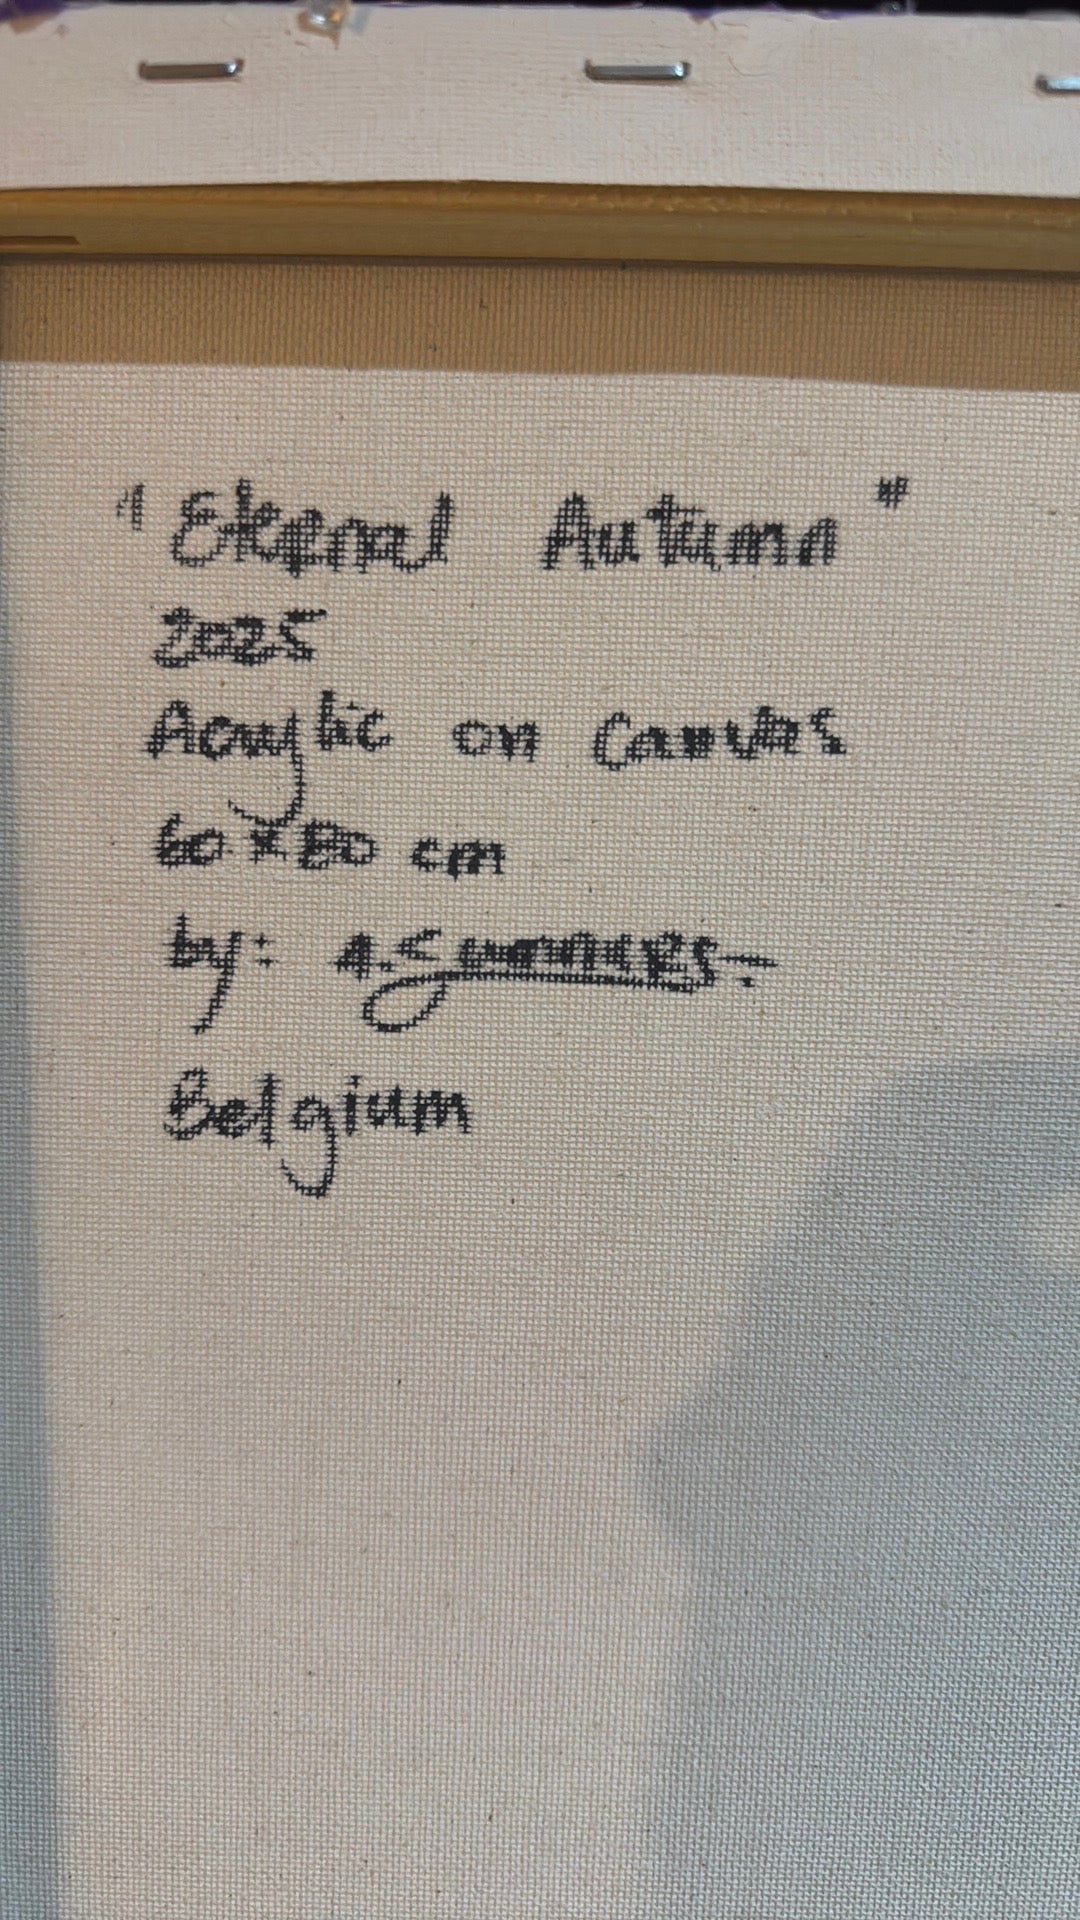 "Eternal Autumn"
2025
Acrylic on Canvas
60 x 80 cm
by: A. Summers
Belgium